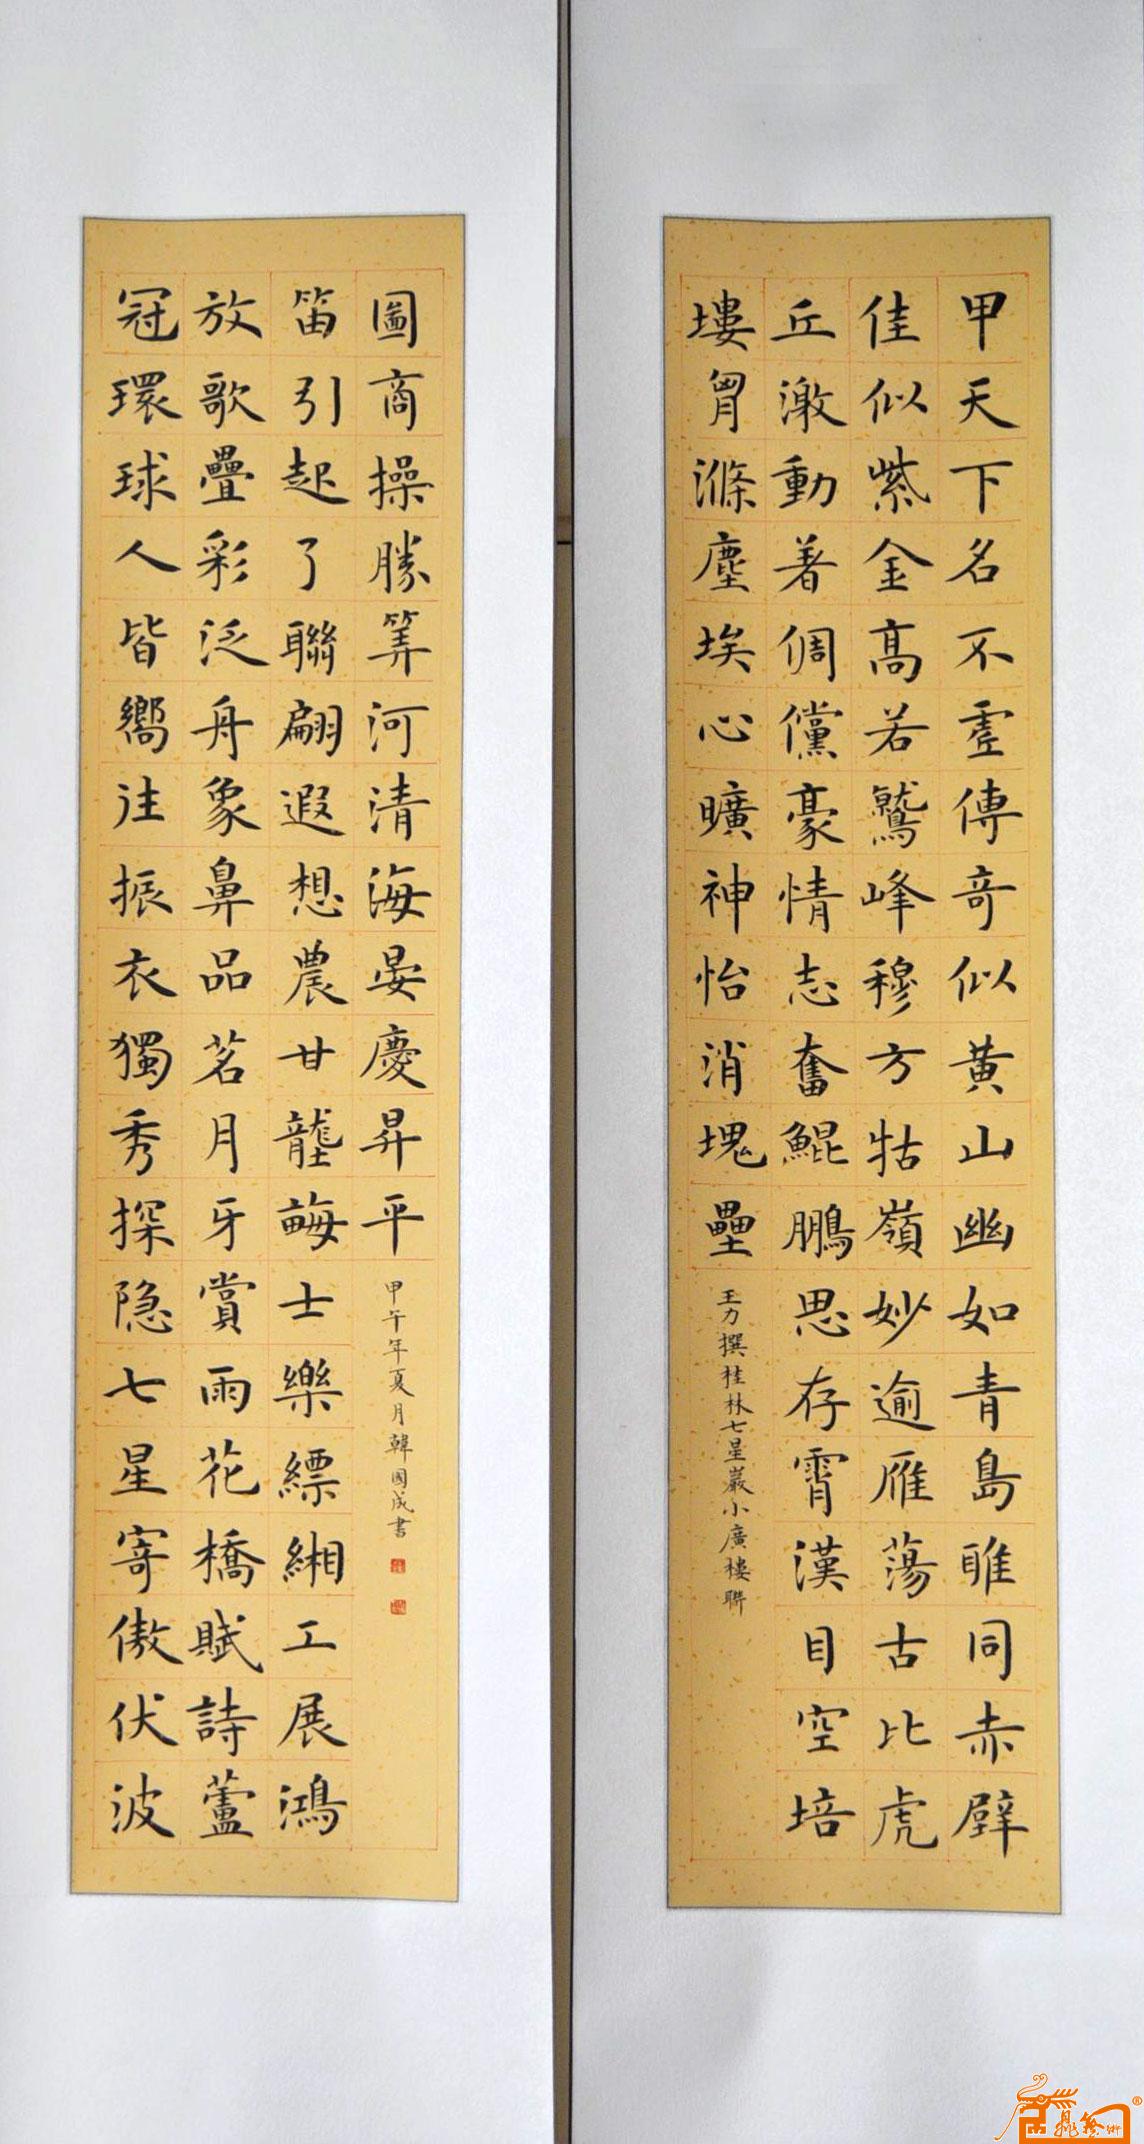 甲天下名不虛傳奇似黃山幽如青島雎同赤壁
佳似紫金髙若鷲峰穆方牯嶺妙逾雁蕩古比虎
丘激動著倜儻豪情志奮鯤鵬思存霄漢目空培
塿胷滌塵埃心曠神怡消塊壘
王力撰桂林七星巖小廣樓聯
冠環球人皆嚮往振衣獨秀探隐七星寄傲伏波
放歌疊彩泛舟象鼻品茗月牙賞雨花橋賦詩蘆
笛引起了聯翩遐想農甘壟畮士樂縹緗工展鴻
圖商操勝筭河清海晏慶昇平
甲午年夏月韓國成書